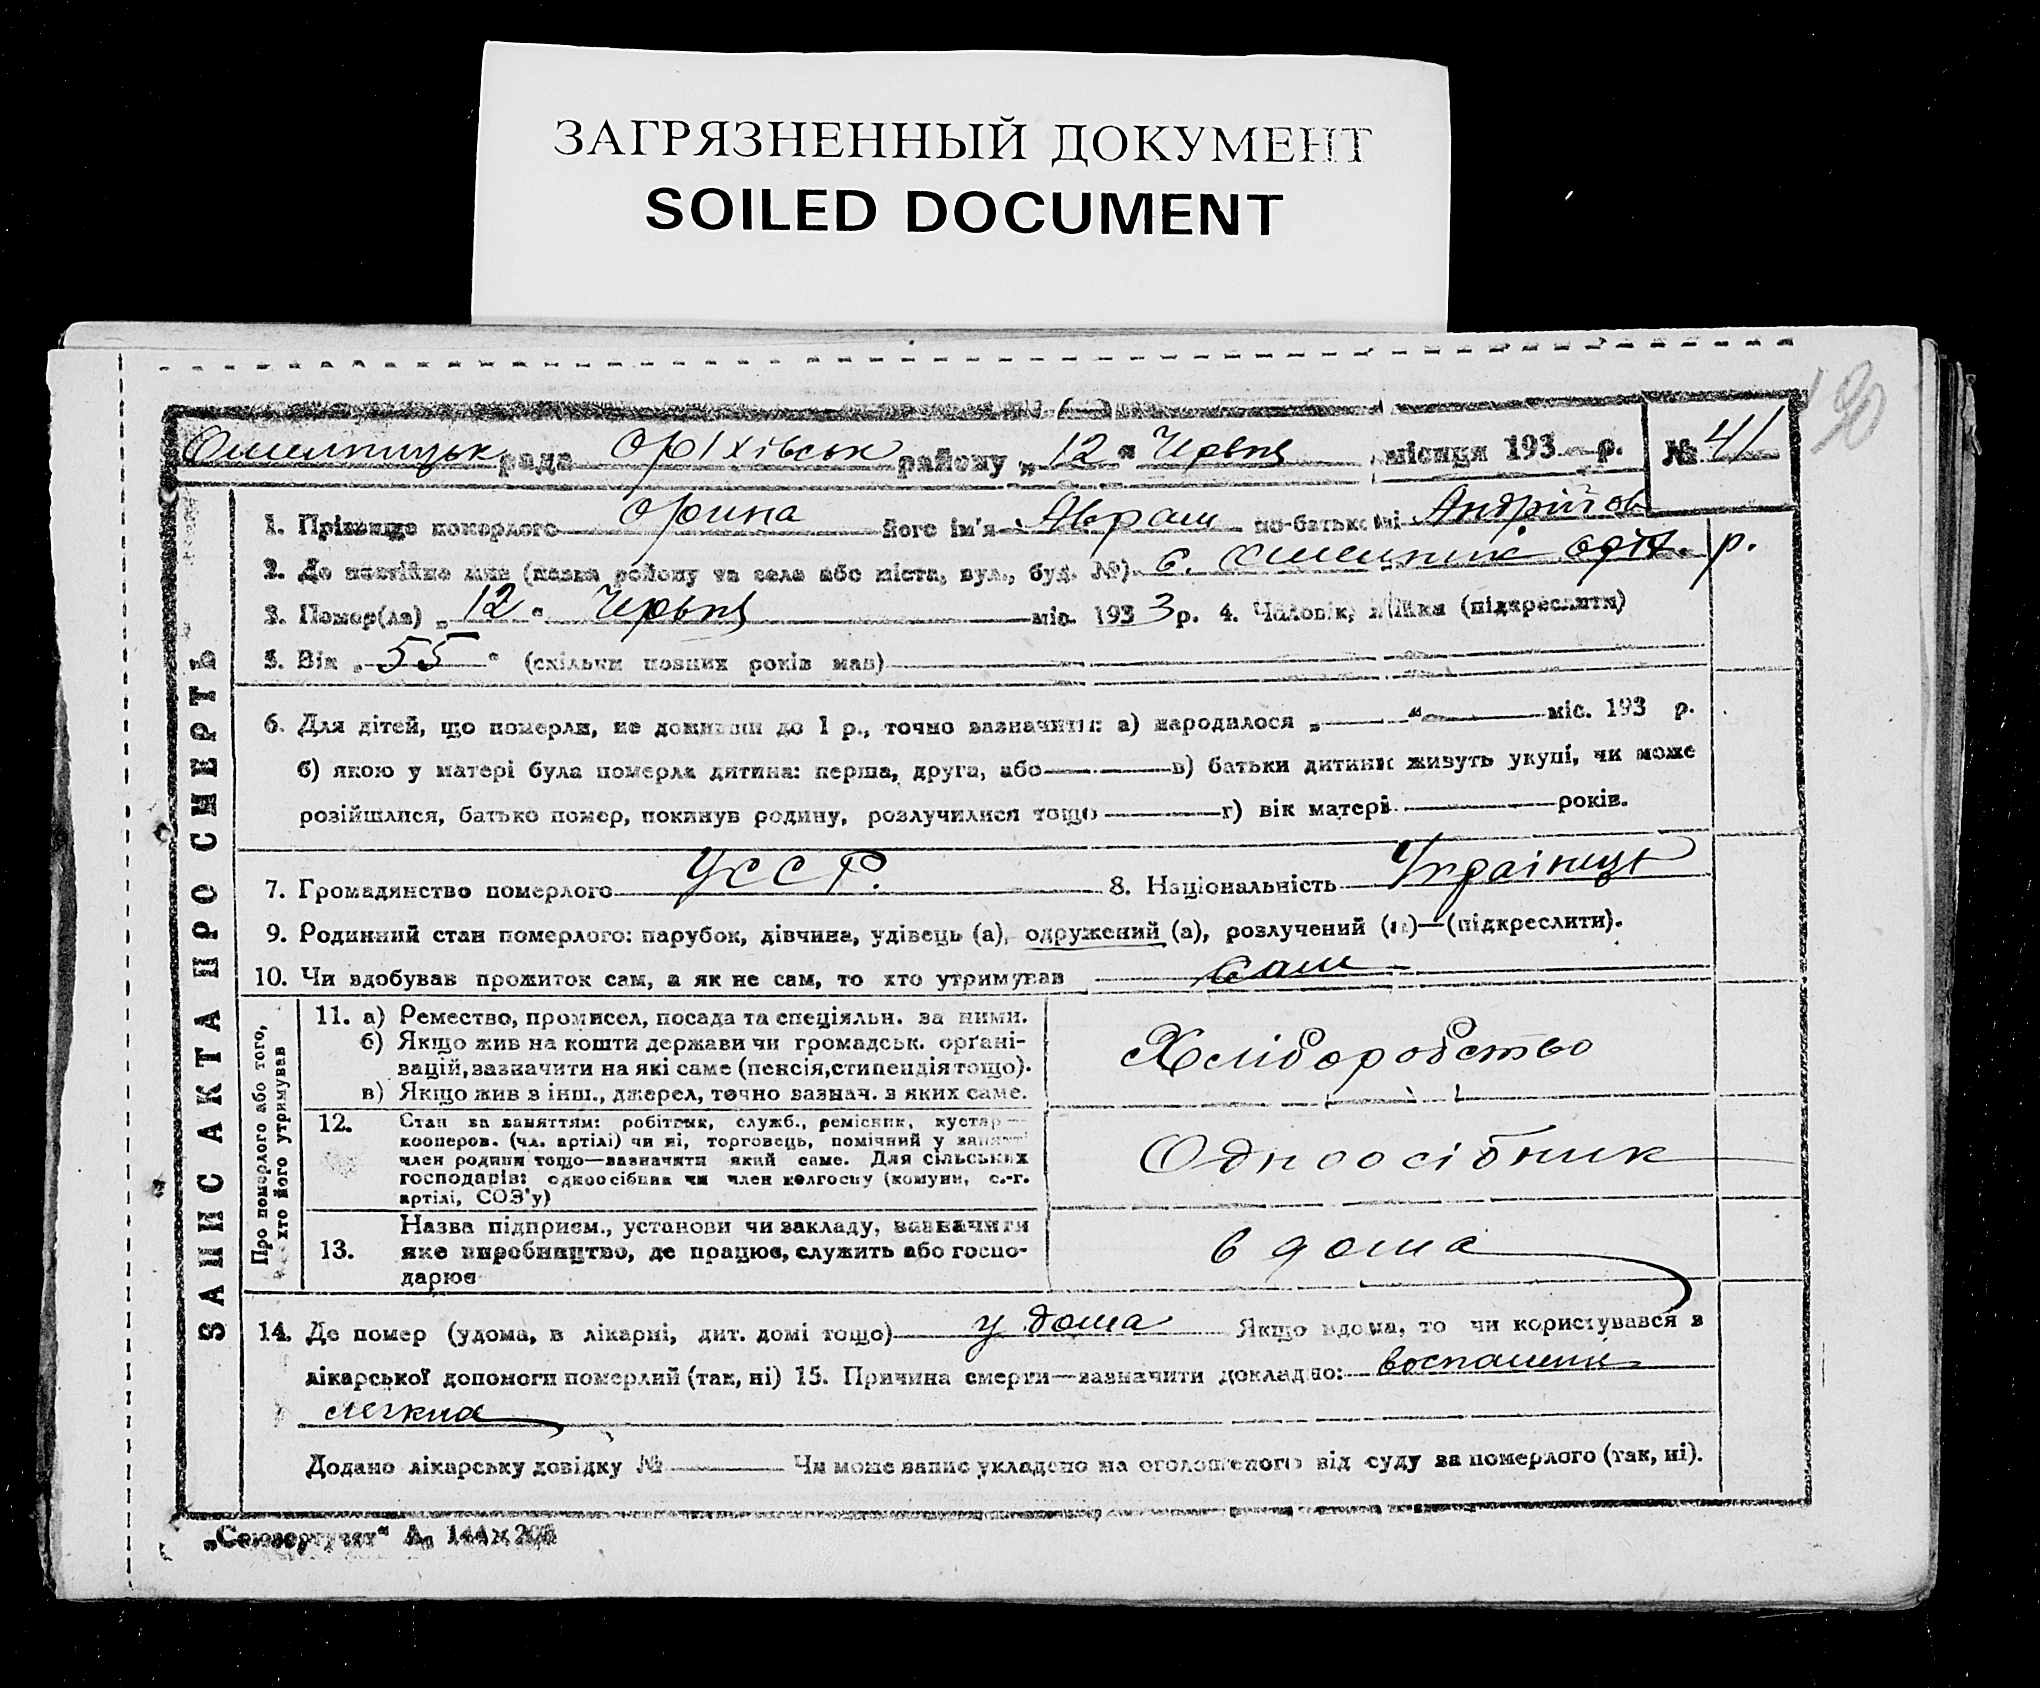 ЗАГРЯЗНЕННЫЙ ДОКУМЕНТ
SOILED DOCUMENT
рада Оріхівськ району „12“ Червня місяця 193 р. № 41
1. Прізвище померлого Орина його ім'я Аврам по-батькові Андрійов
2. Де постійно жив (назва району та села або міста, вул., буд. №) с. р.
3. Помер(ла) „12“ Червня міс. 1933 р. 4. Чоловік, жінка (підкреслити)
5. Вік „55“ (скільки повних років мав)
6. Для дітей, що померли, не доживши до 1 р., точно зазначити: а) народилося „ “ міс. 193 р.
б) якою у матері була померла дитина: перша, друга, або в) батьки дитини живуть укупі, чи може
розійшлися, батько помер, покинув родину, розлучилися тощо г) вік матері років.
7. Громадянство померлого УССР. 8. Національність Українець
9. Родинний стан померлого: парубок, дівчина, удівець (а), одружений (а), розлучений (а)—(підкреслити).
10. Чи здобував прожиток сам, а як не сам, то хто утримував сам
ЗАПИС АКТА ПРО СМЕРТЬ
Про померлого або того,
хто його утримував
11. а) Ремество, промисел, посада та спеціяльн. за ними.
б) Якщо жив на кошти держави чи громадськ. орґані-
зацій, зазначити на які саме (пенсія, стипендія тощо).
в) Якщо жив з інш., джерел, точно зазнач. з яких саме.
Хліборобство
12. Стан за заняттям: робітник, служб., ремісник, кустар—
кооперов. (чл. артілі) чи ні, торговець, помічний у занятті
член родини тощо—зазначити який саме. Для сільських
господарів: одноосібник чи член колгоспу (комуни, с.-г.
артілі, СОЗ'у)
Одноосібник
13. Назва підприєм., установи чи закладу, зазначити
яке виробництво, де працює, служить або госпо-
дарює
в дома
14. Де помер (удома, в лікарні, дит. домі тощо) у дома Якщо вдома, то чи користувався з
лікарської допомоги померлий (так, ні) 15. Причина смерти—зазначити докладно:
легких
Додано лікарську довідку № Чи може запис укладено на оголошеного від суду за померлого (так, ні).